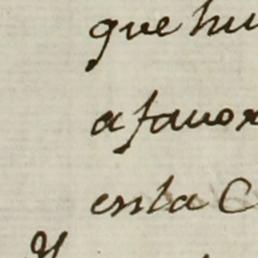 que hu
a favor
en la C
y